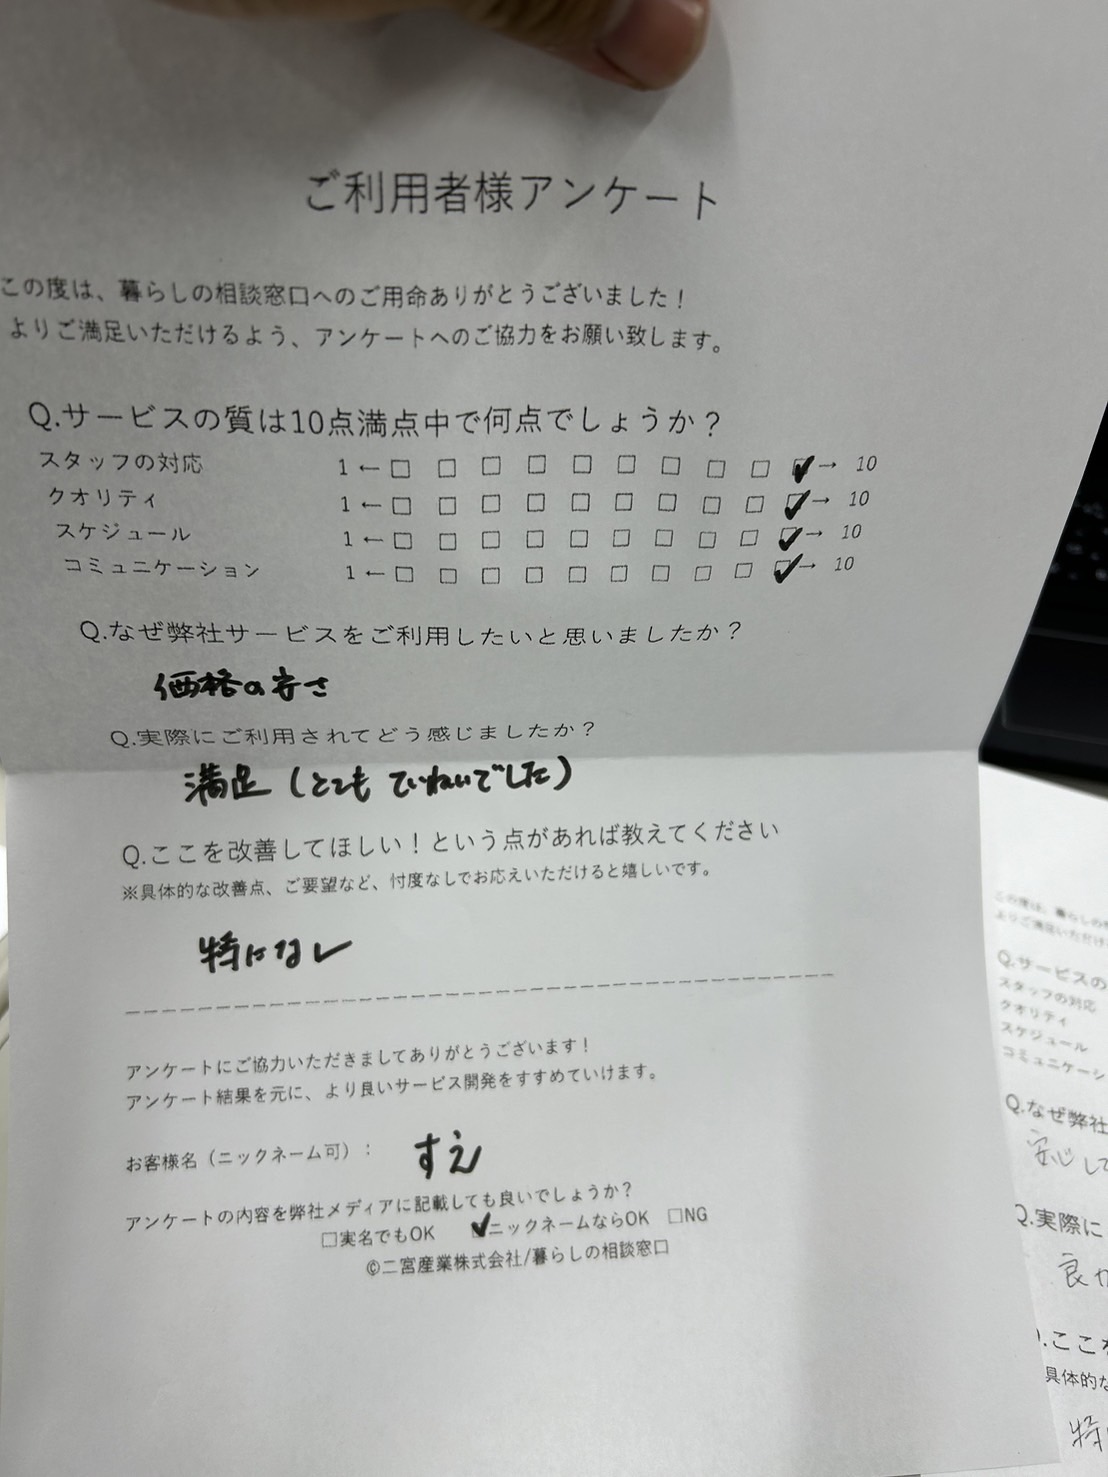 ご利用者様アンケート
この度は、暮らしの相談窓口へのご用命ありがとうございました！
よりご満足いただけるよう、アンケートへのご協力をお願い致します。
Q.サービスの質は10点満点中で何点でしょうか？
スタッフの対応 1 ←□ □ □ □ □ □ □ □ □ ☑→ 10
クオリティ 1 ←□ □ □ □ □ □ □ □ □ ☑→ 10
スケジュール 1 ←□ □ □ □ □ □ □ □ □ ☑→ 10
コミュニケーション 1 ←□ □ □ □ □ □ □ □ □ ☑→ 10
Q.なぜ弊社サービスをご利用したいと思いましたか？
価格の安さ
Q.実際にご利用されてどう感じましたか？
満足（とても ていねいでした）
Q.ここを改善してほしい！という点があれば教えてください
※具体的な改善点、ご要望など、忖度なしでお応えいただけると嬉しいです。
特になし
アンケートにご協力いただきましてありがとうございます！
アンケート結果を元に、より良いサービス開発をすすめていけます。
お客様名（ニックネーム可）： すえ
アンケートの内容を弊社メディアに記載しても良いでしょうか？
□実名でもOK ☑ニックネームならOK □NG
©二宮産業株式会社/暮らしの相談窓口
この度は、暮らしの
よりご満足いただけ
Q.サービスの
スタッフの対応
クオリティ
スケジュール
コミュニケーシ
Q.なぜ弊社
安心して
Q.実際に
良か
.ここを
具体的な
特に